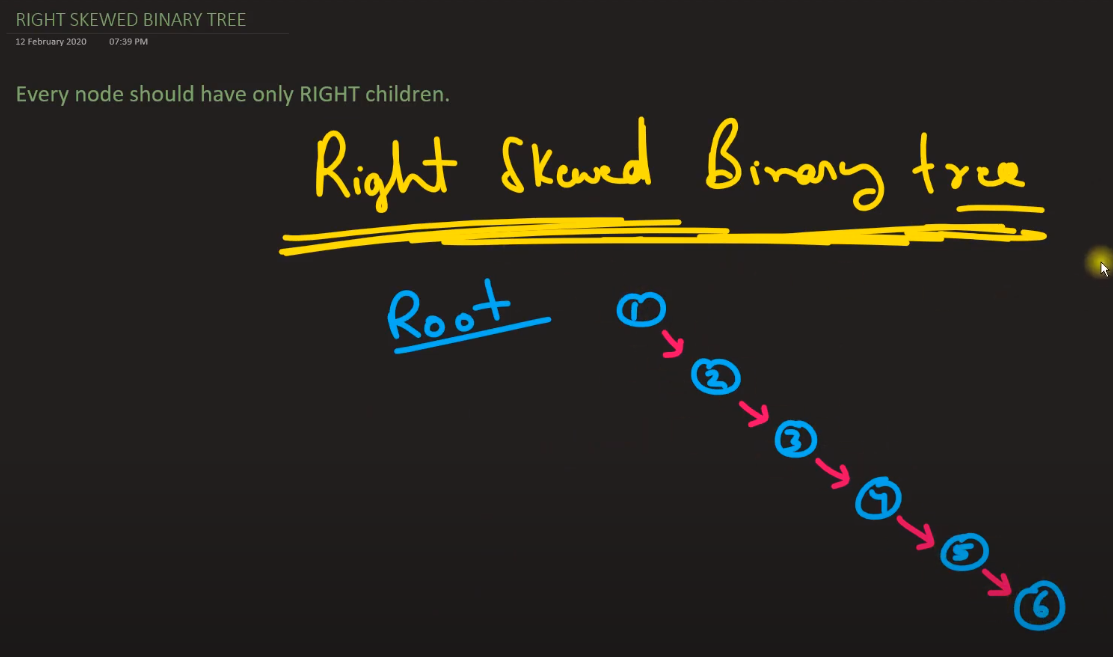 RIGHT SKEWED BINARY TREE
12 February 2020 07:39 PM
Every node should have only RIGHT children.
Right Skewed Binary tree
Root
1
2
3
4
5
6